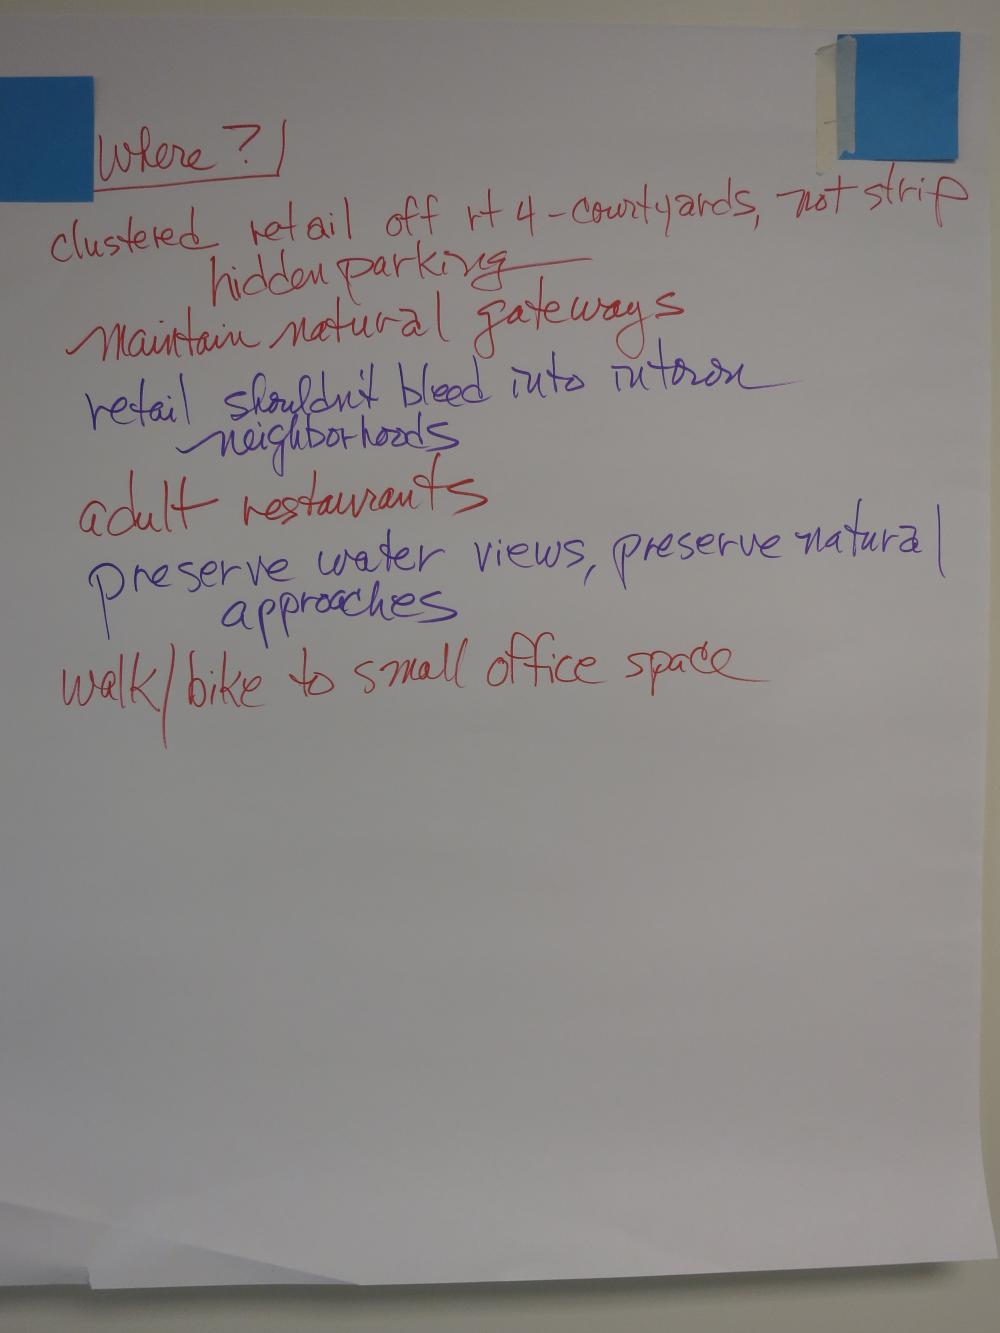 Where?
clustered retail off rt 4 - courtyards, not strip
hidden parking
maintain natural gateways
retail shouldn't bleed into
neighborhoods
adult restaurants
preserve water views, preserve natural
approaches
walk/bike to small office space